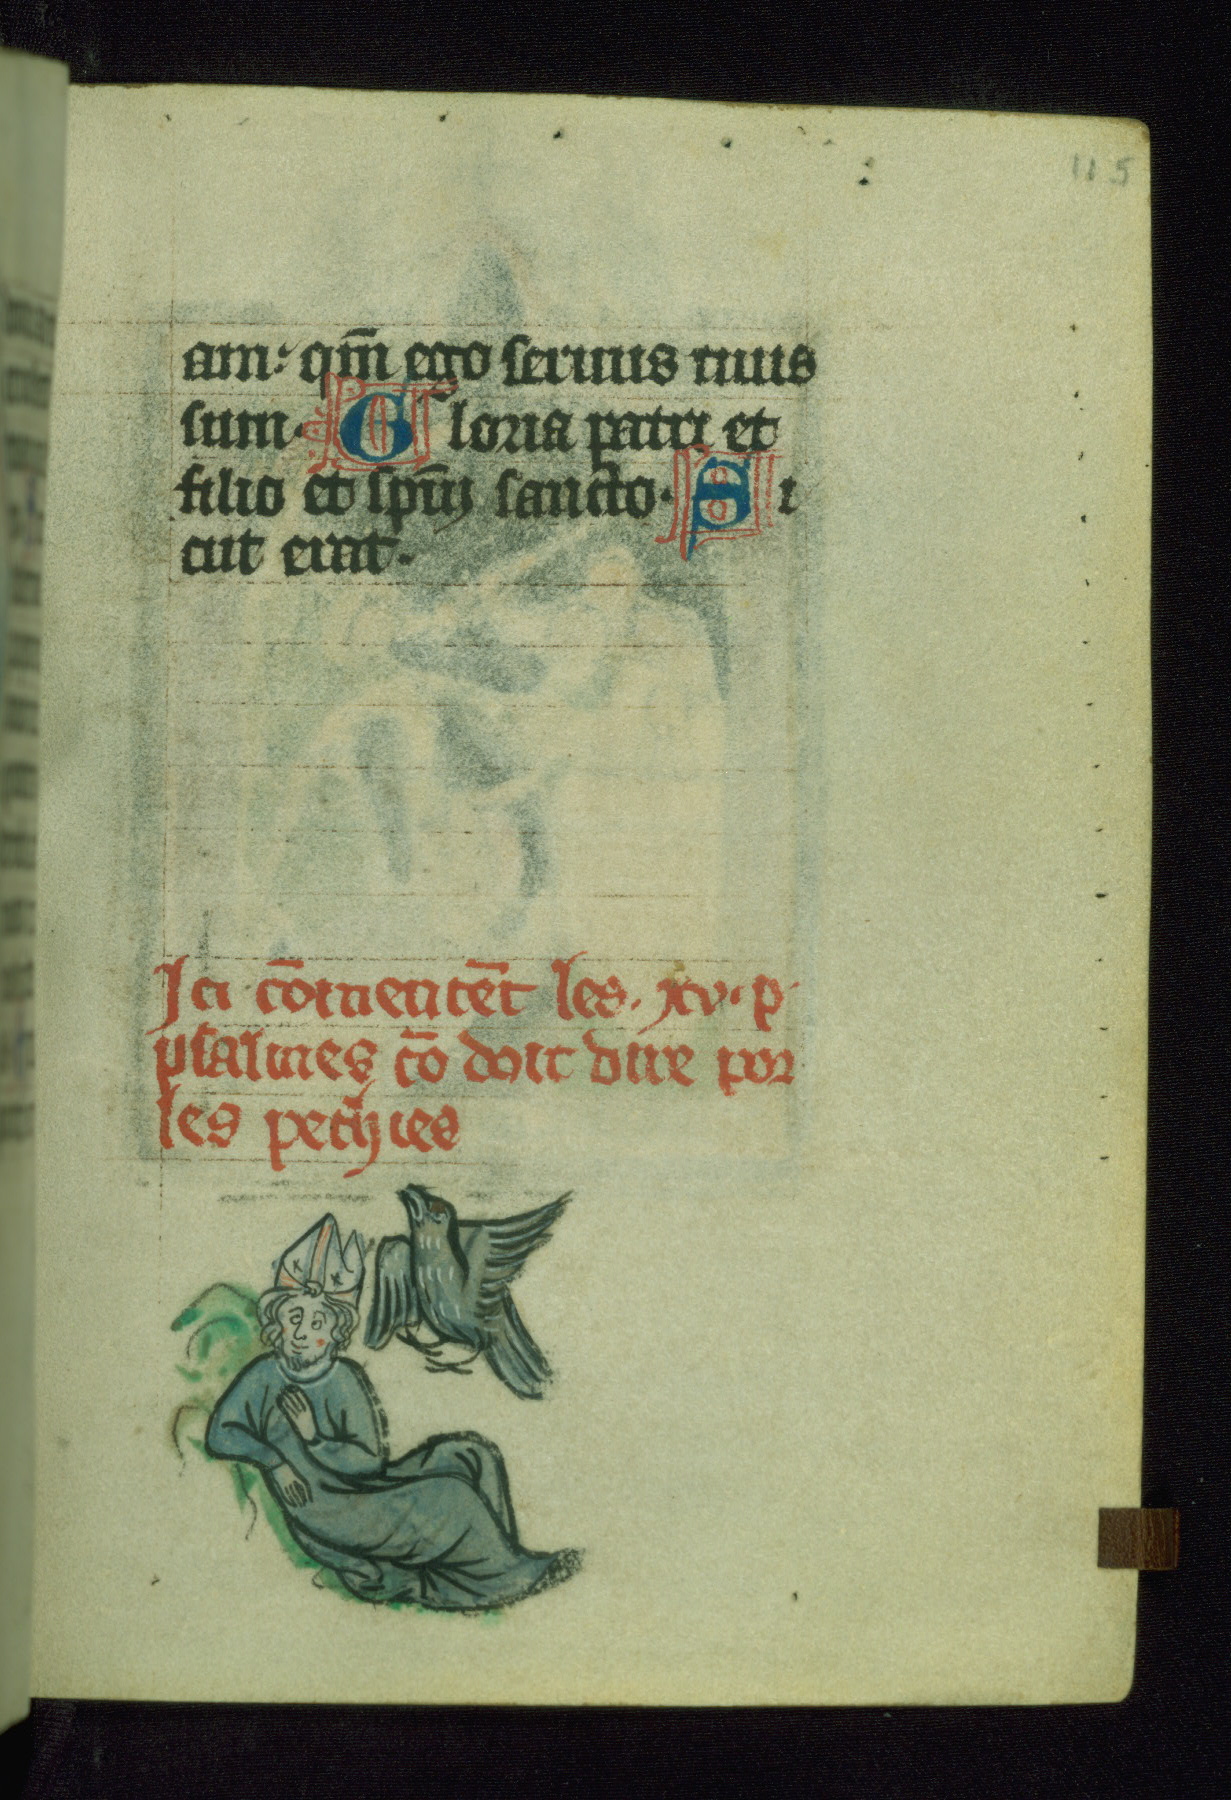 115
am: qm̄ ego seruus tuus
sum. Gloria patri et
filio et spūi sancto. Si
cut erat.
Ici cōmencēt les. xv. p.
psalmes cō doit dire por
les pechies